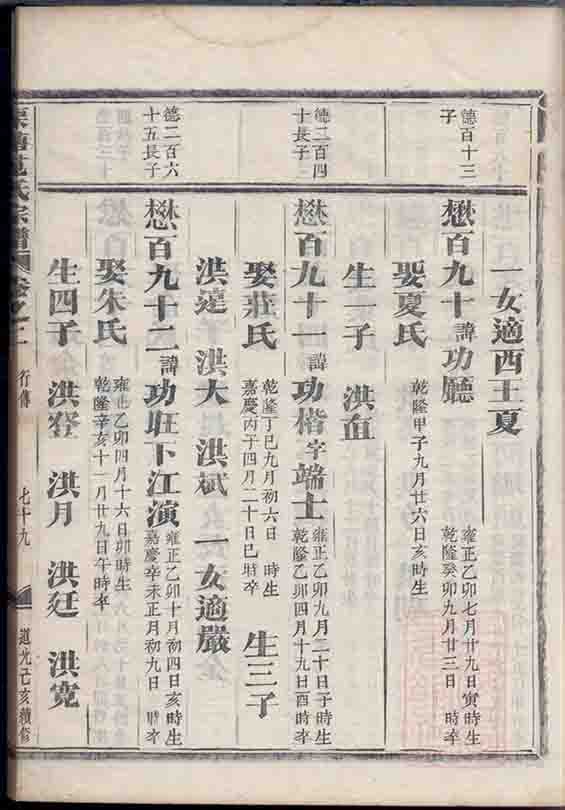 一女適西王夏
德百十三
子
懋百九十 諱 功廳 雍正乙卯七月廿九日寅時生
乾隆癸卯九月廿三日 時卒
娶夏氏 乾隆甲子九月廿六日亥時生
生一子 洪血
德二百四
十長子
懋百九十一 諱 功楷 字 端士 雍正乙卯九月二十日子時生
乾隆乙卯四月十九日酉時卒
娶莊氏 乾隆丁巳九月初六日 時生
嘉慶丙子四月二十日巳時卒 生三子
洪達 洪大 洪斌 一女適嚴
德二百六
十五長子
懋百九十二 諱 功旺下江演 雍正乙卯十月初四日亥時生
嘉慶辛未正月初九日 時卒
娶朱氏 雍正乙卯四月十六日卯時生
乾隆辛亥十一月廿九日午時卒
生四子 洪登 洪月 洪廷 洪寬
范氏宗譜 卷之二 行傳 七十九 道光己亥續修